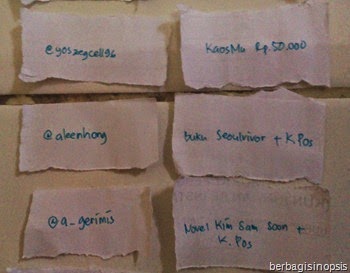 @yoszegcell96
KaosMu Rp.50.000
@aleenhong
Buku Seoulvivor + K.Pos
@a_gerimis
Novel Kim Sam Soon +
K. Pos
berbagisinopsis